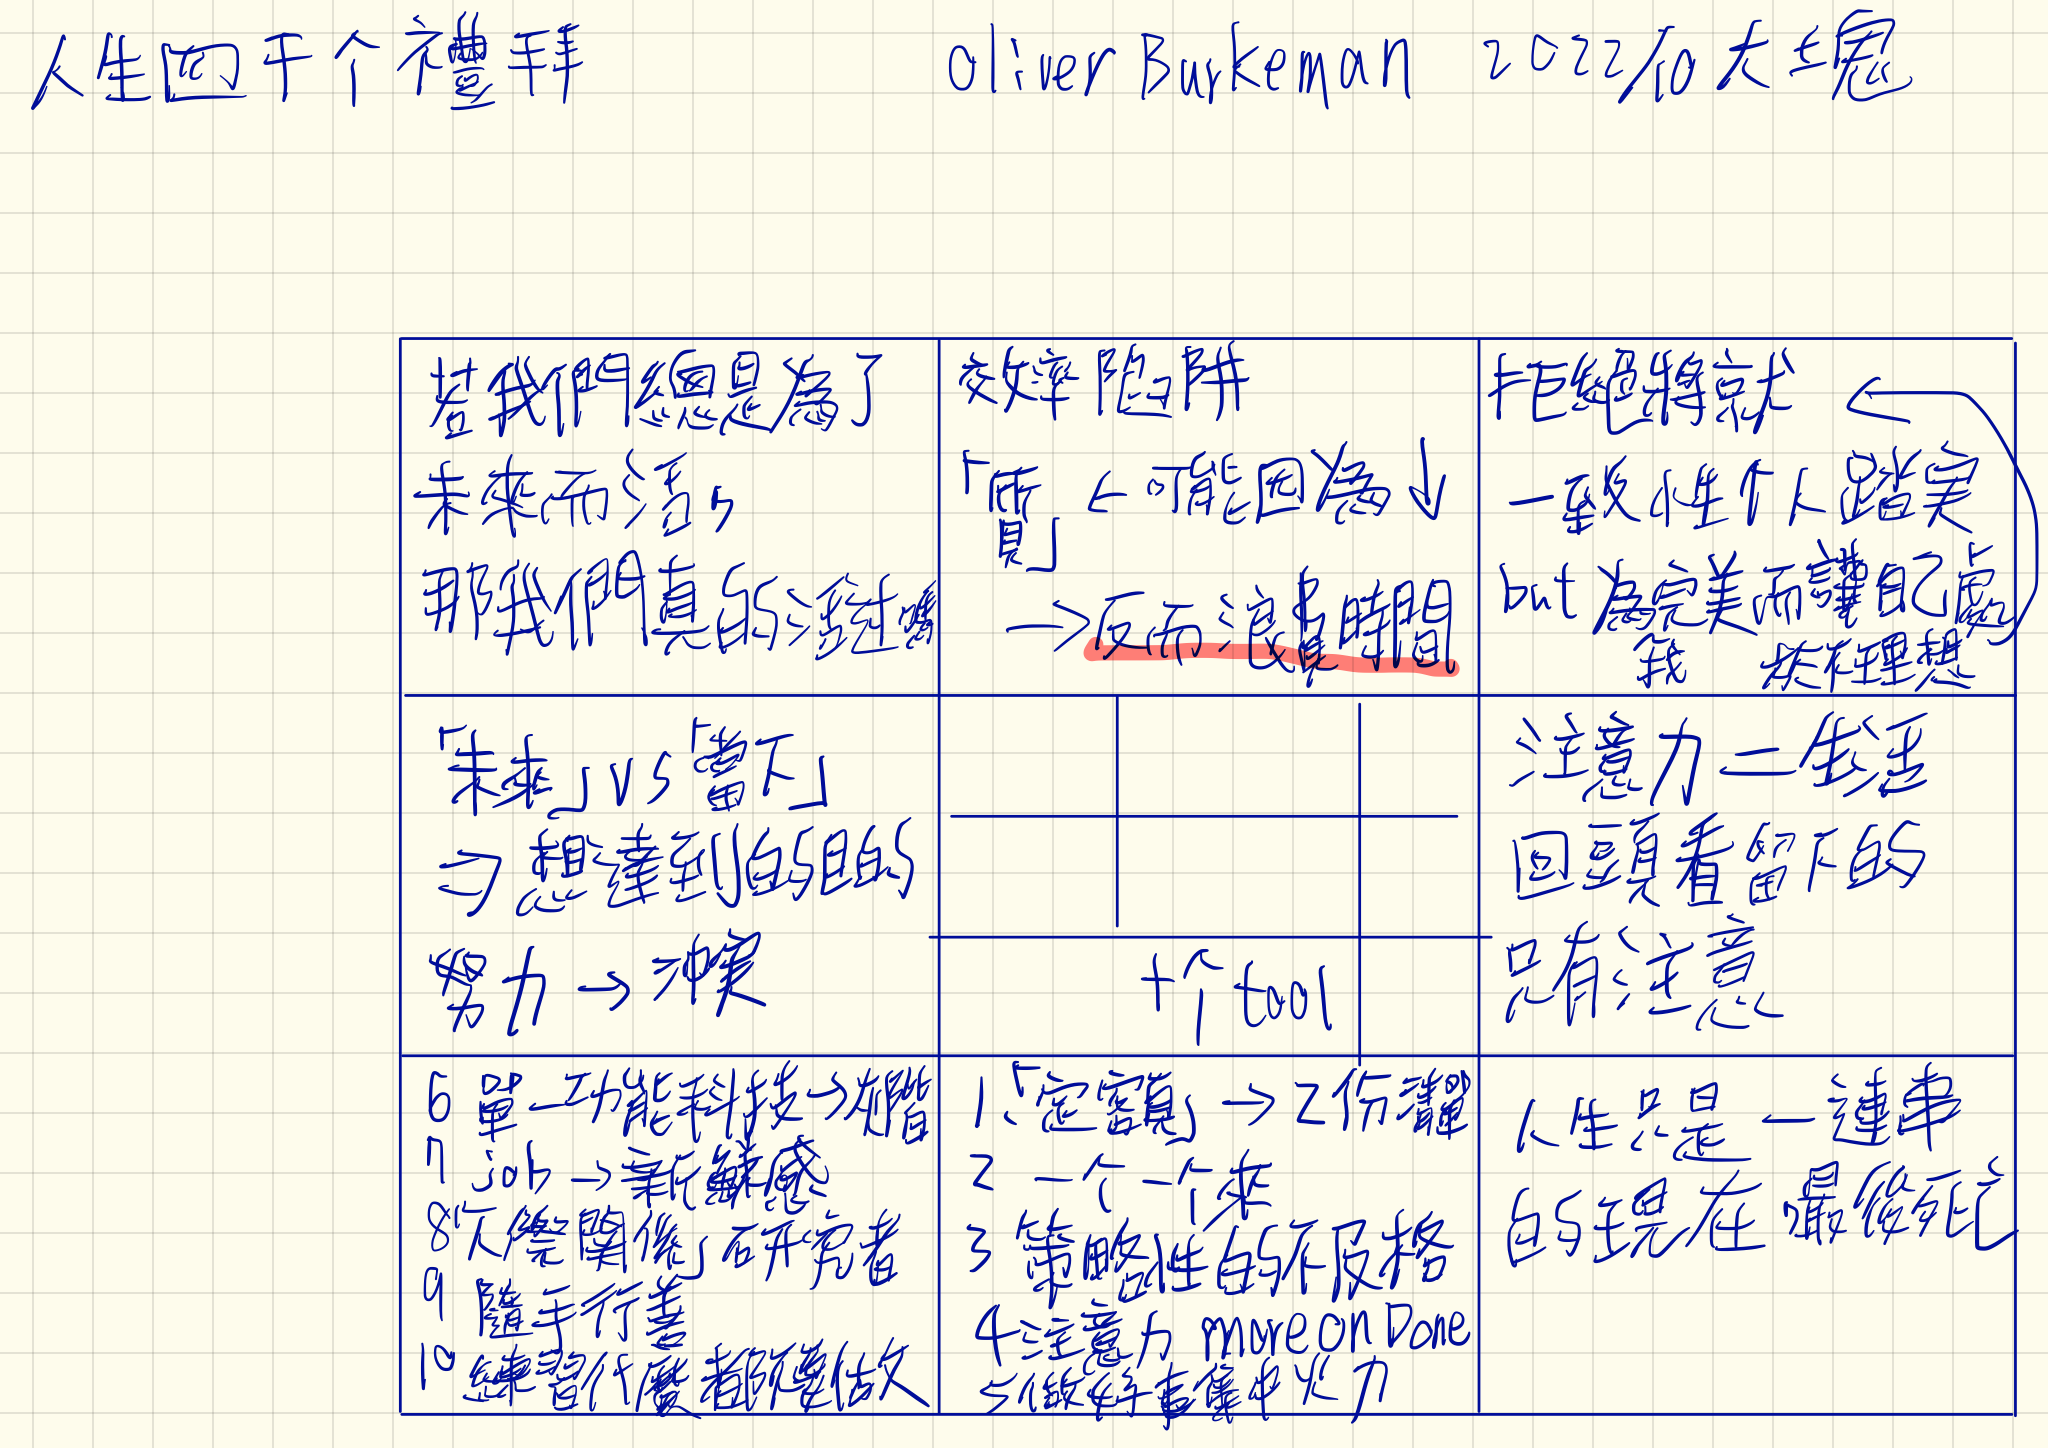 人生四千个禮拜
Oliver Burkeman 2022/10 大塊
若我們總是為了
未來而活,
那我們真的活過嗎
效率陷阱
「質」 ← 可能因為↓
→反而浪費時間
拒絕將就
一致性个人踏実
but 為完美而讓自己處
我 於不理想
「未來」vs「當下」
⇒ 想達到的目的
努力→沖突
十个tool
注意力=生活
回頭看留下的
只有注意
6 單一功能科技→灰階
7 job→新鮮感
8「人際關係」研究者
9 隨手行善
10 練習什麼都別做
1「定額」→2份清單
2 一个一个來
3 策略性的不及格
4 注意力 more on Done
5 做好事集中火力
人生只是一連串
的現在 最後死亡